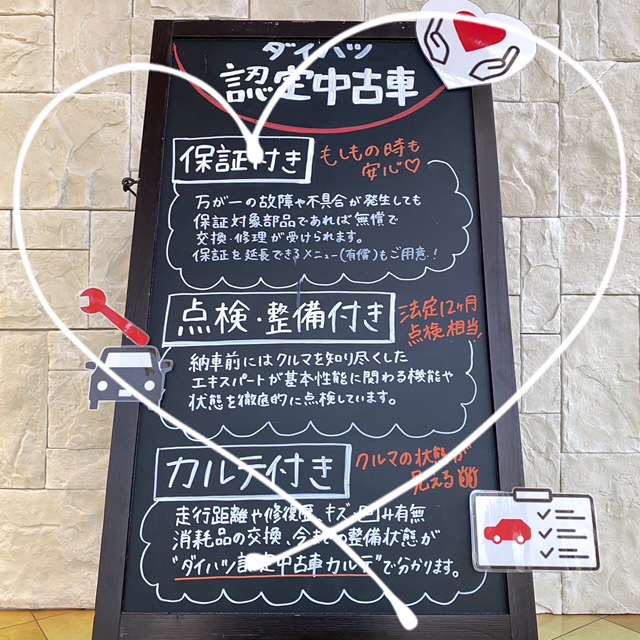 ダイハツ
認定中古車
保証付き
もしもの時も
安心♡
万が一の故障や不具合が発生しても
保証対象部品であれば無償で
交換・修理が受けられます。
保証を延長できるメニュー(有償)もご用意!
点検・整備付き
法定12ヶ月
点検相当!
納車前にはクルマを知り尽くした
エキスパートが基本性能に関わる機能や
状態を徹底的に点検しています。
カルテ付き
クルマの状態が
見える
走行距離や修復歴、キズ、凹み有無
消耗品の交換、今までの整備状態が
"ダイハツ認定中古車カルテ"で分かります。